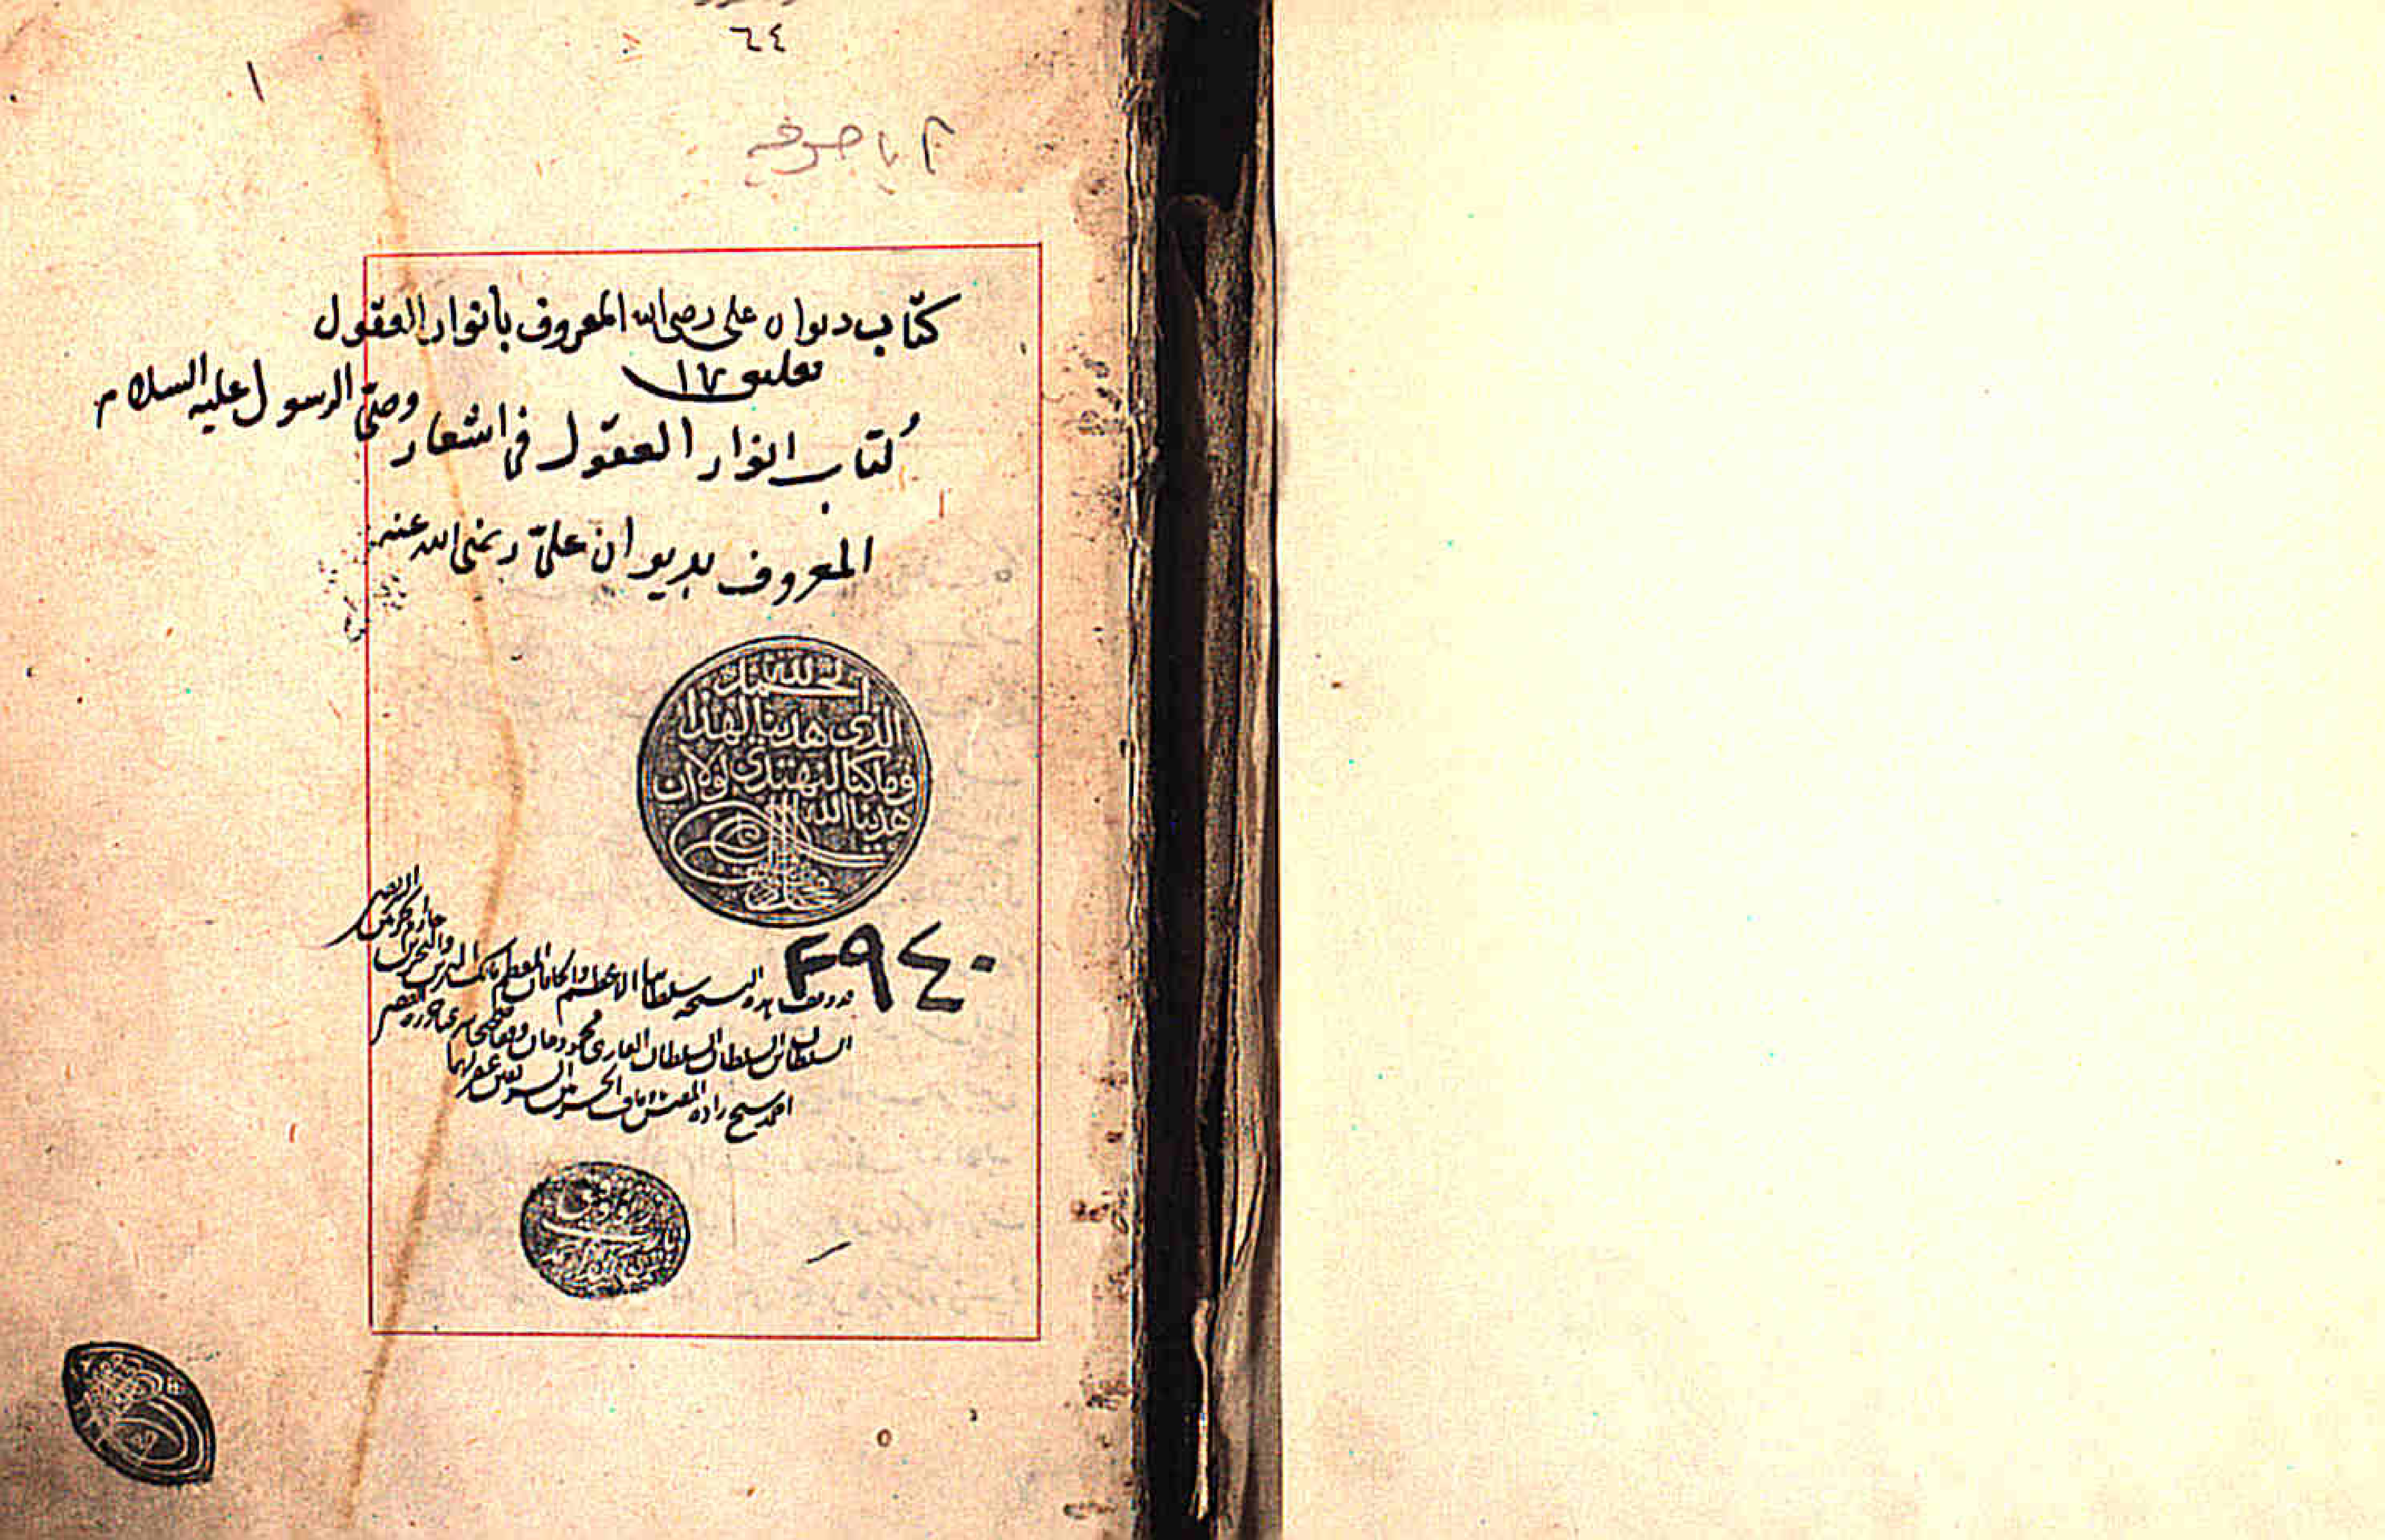 ٦٤
١
اياصوفيه
كتاب ديوان على رضى الله المعروف بانوار العقول
تعليق ١٧
كتاب انوار العقول في اشعار وصىّ الرسول عليه السلام
المعروف بديوان علىّ رضى الله عنه
الحمد لله
الذى هدينا لهذا
وما كنا لنهتدى لولا ان
هدينا الله
٣٩٤٠
قد وقف هذه النسخه سلطاننا الاعظم والخاقان المعظم مالك البرين والبحرين
السلطان بن السلطان السلطان الغازى محمود خان وقفا صحيحا شرعيا
احمد شيخ زاده المفتش باوقاف الحرمين الشريفين غفر لهما